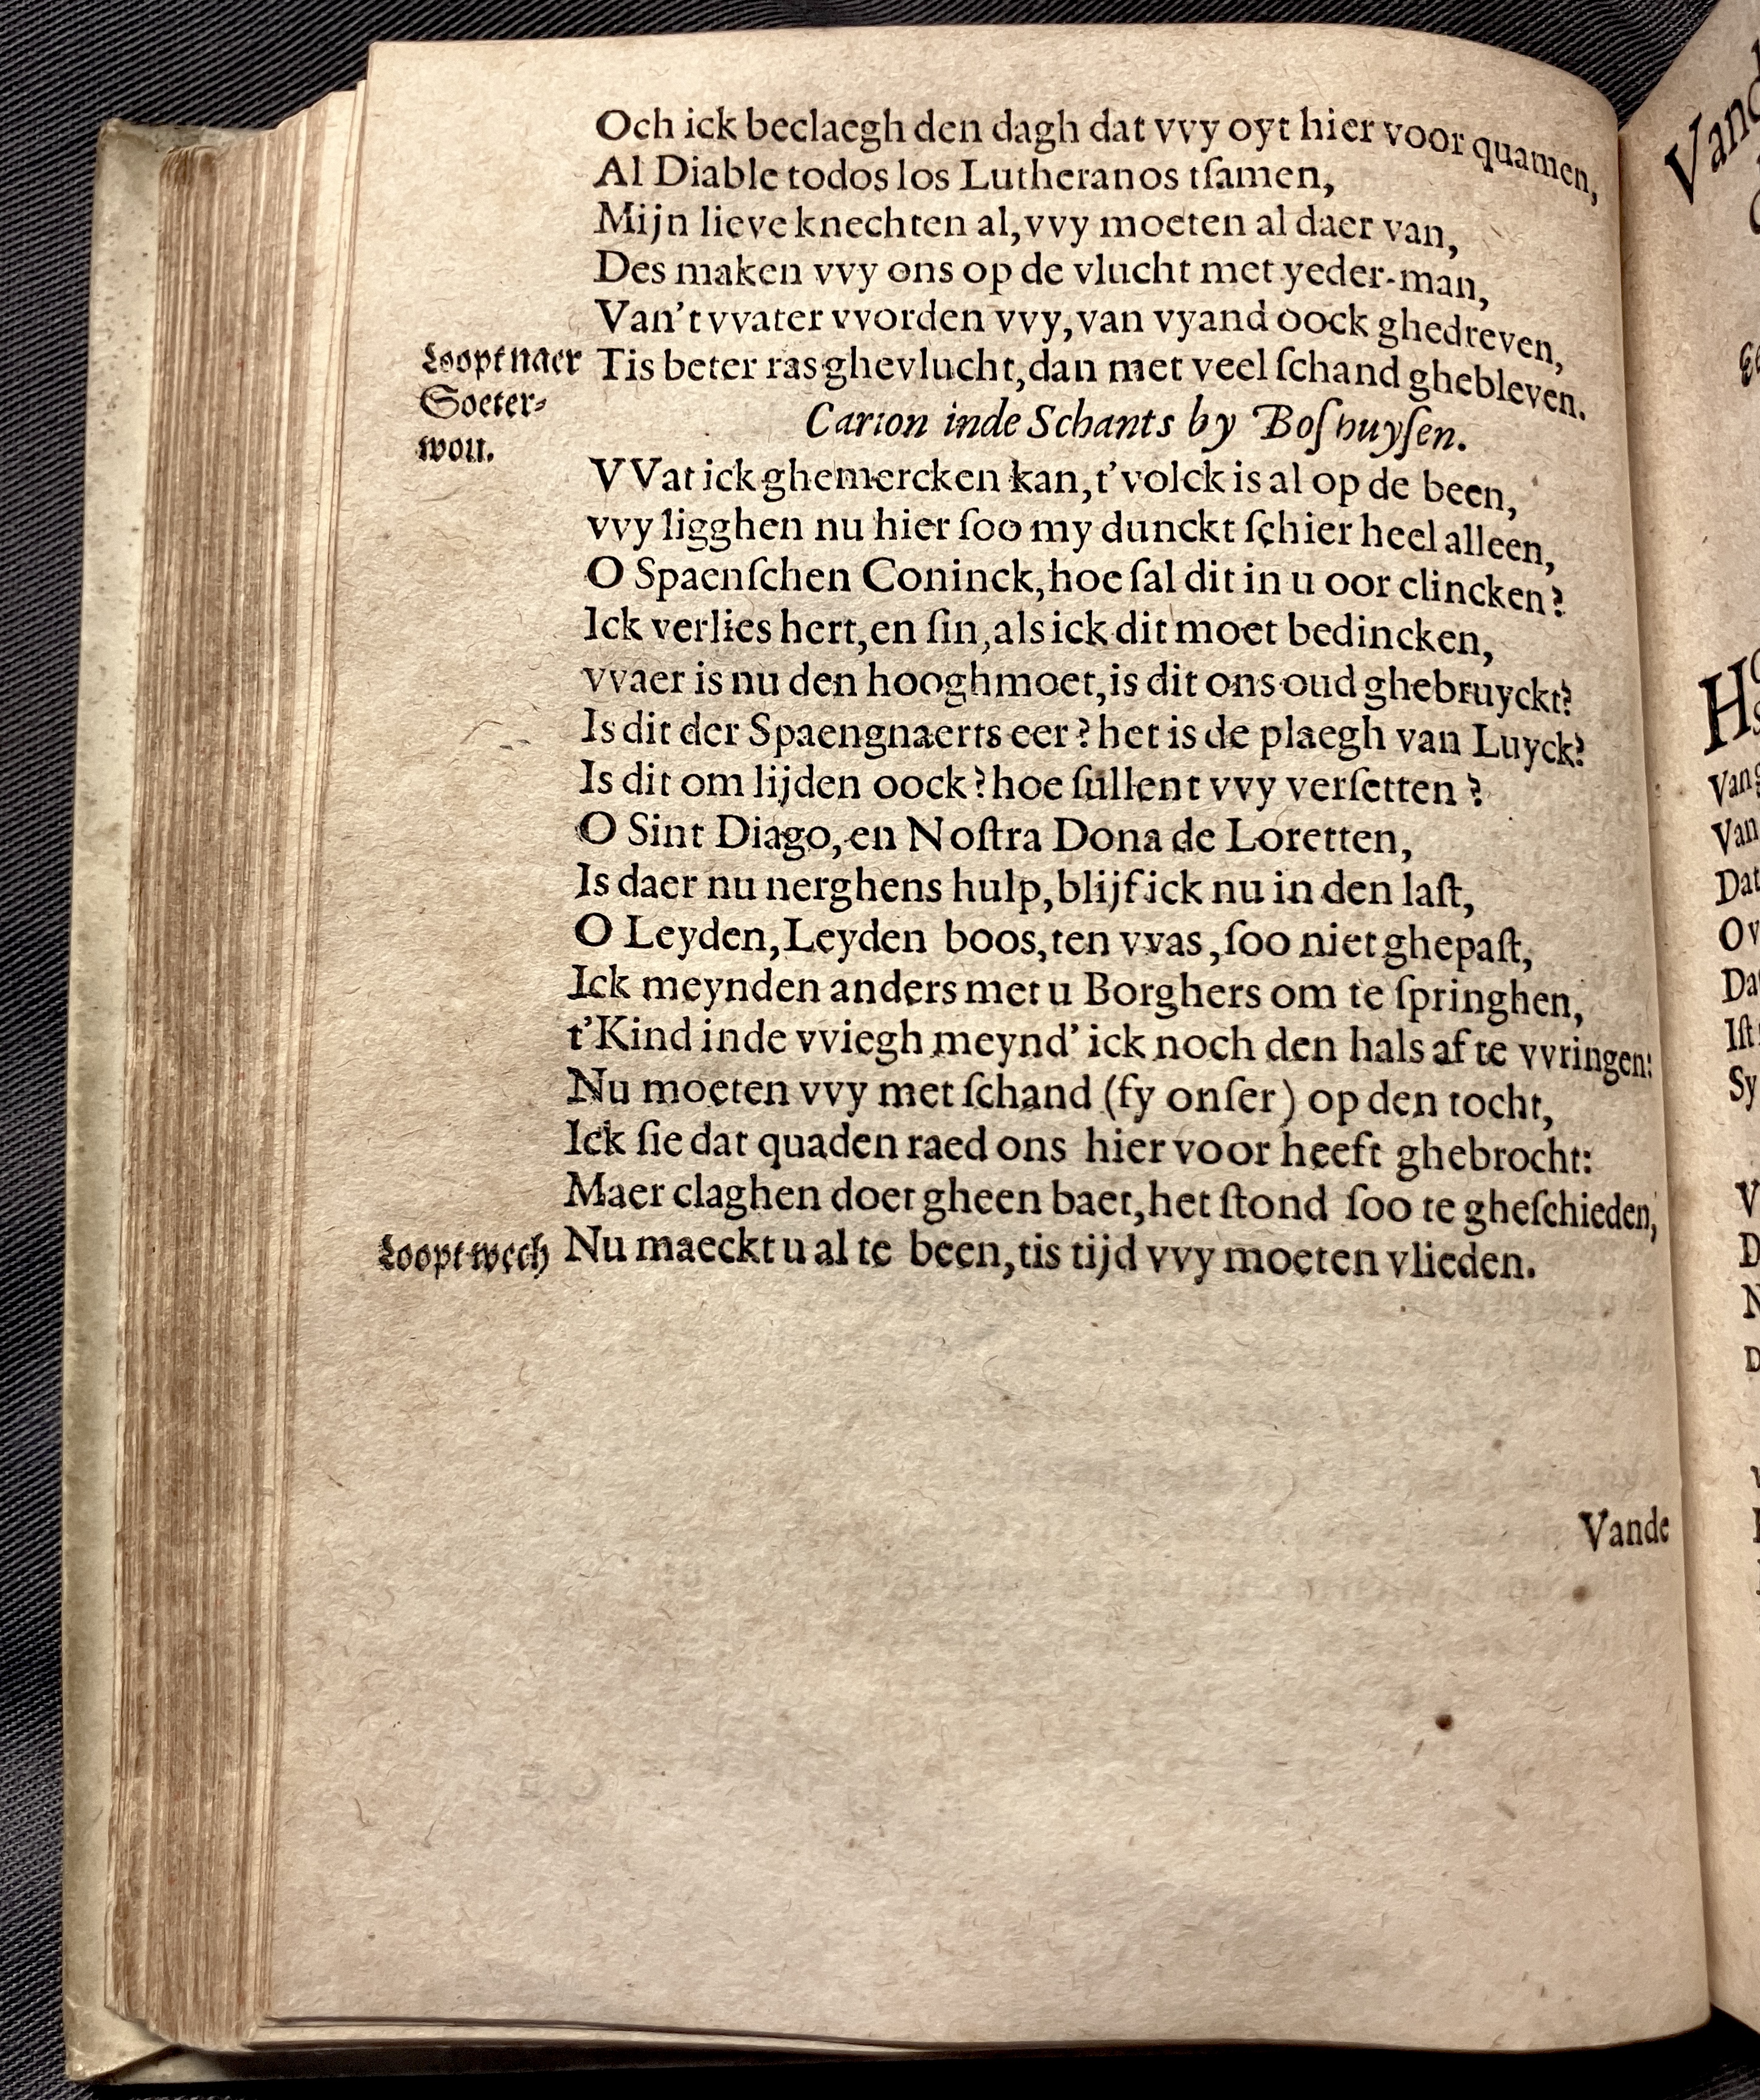 Och ick beclaegh den dagh dat vvy oyt hier voor quamen,
Al Diable todos los Lutheranos tſamen,
Mijn lieve knechten al, vvy moeten al daer van,
Des maken vvy ons op de vlucht met yeder-man,
Van't vvater vvorden vvy, van vyand oock ghedreven,
Loopt naer
Soeter-
wou.
Tis beter ras ghevlucht, dan met veel ſchand ghebleven.
Carion inde Schants by Boſhuyſen.
VVat ick ghemercken kan, t'volck is al op de been,
vvy ligghen nu hier ſoo my dunckt ſchier heel alleen,
O Spaenſchen Coninck, hoe ſal dit in u oor clincken?
Ick verlies hert, en ſin, als ick dit moet bedincken,
vvaer is nu den hooghmoet, is dit ons oud ghebruyckt?
Is dit der Spaengnaerts eer? het is de plaegh van Luyck?
Is dit om lijden oock? hoe ſullent vvy verſetten?
O Sint Diago, en Noſtra Dona de Loretten,
Is daer nu nerghens hulp, blijf ick nu in den laſt,
O Leyden, Leyden boos, ten vvas, ſoo niet ghepaſt,
Ick meynden anders met u Borghers om te ſpringhen,
t'Kind inde vviegh meynd' ick noch den hals af te vvringen:
Nu moeten vvy met ſchand (fy onſer) op den tocht,
Ick ſie dat quaden raed ons hier voor heeft ghebrocht:
Maer claghen doet gheen baet, het ſtond ſoo te gheſchieden,
Loopt wech
Nu maeckt u al te been, tis tijd vvy moeten vlieden.
Vande